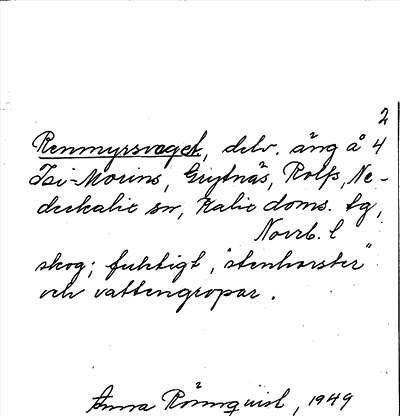 2
Renmyrsvaget, delv. äng å 4
Isi-Morins, Grytnäs, Rolfs, Ne-
derkalix sn, Kalix doms. tg,
Norrb. l
skog; fuktigt, "stenhorster"
och vattengropar.
Anna Rönnquist, 1949